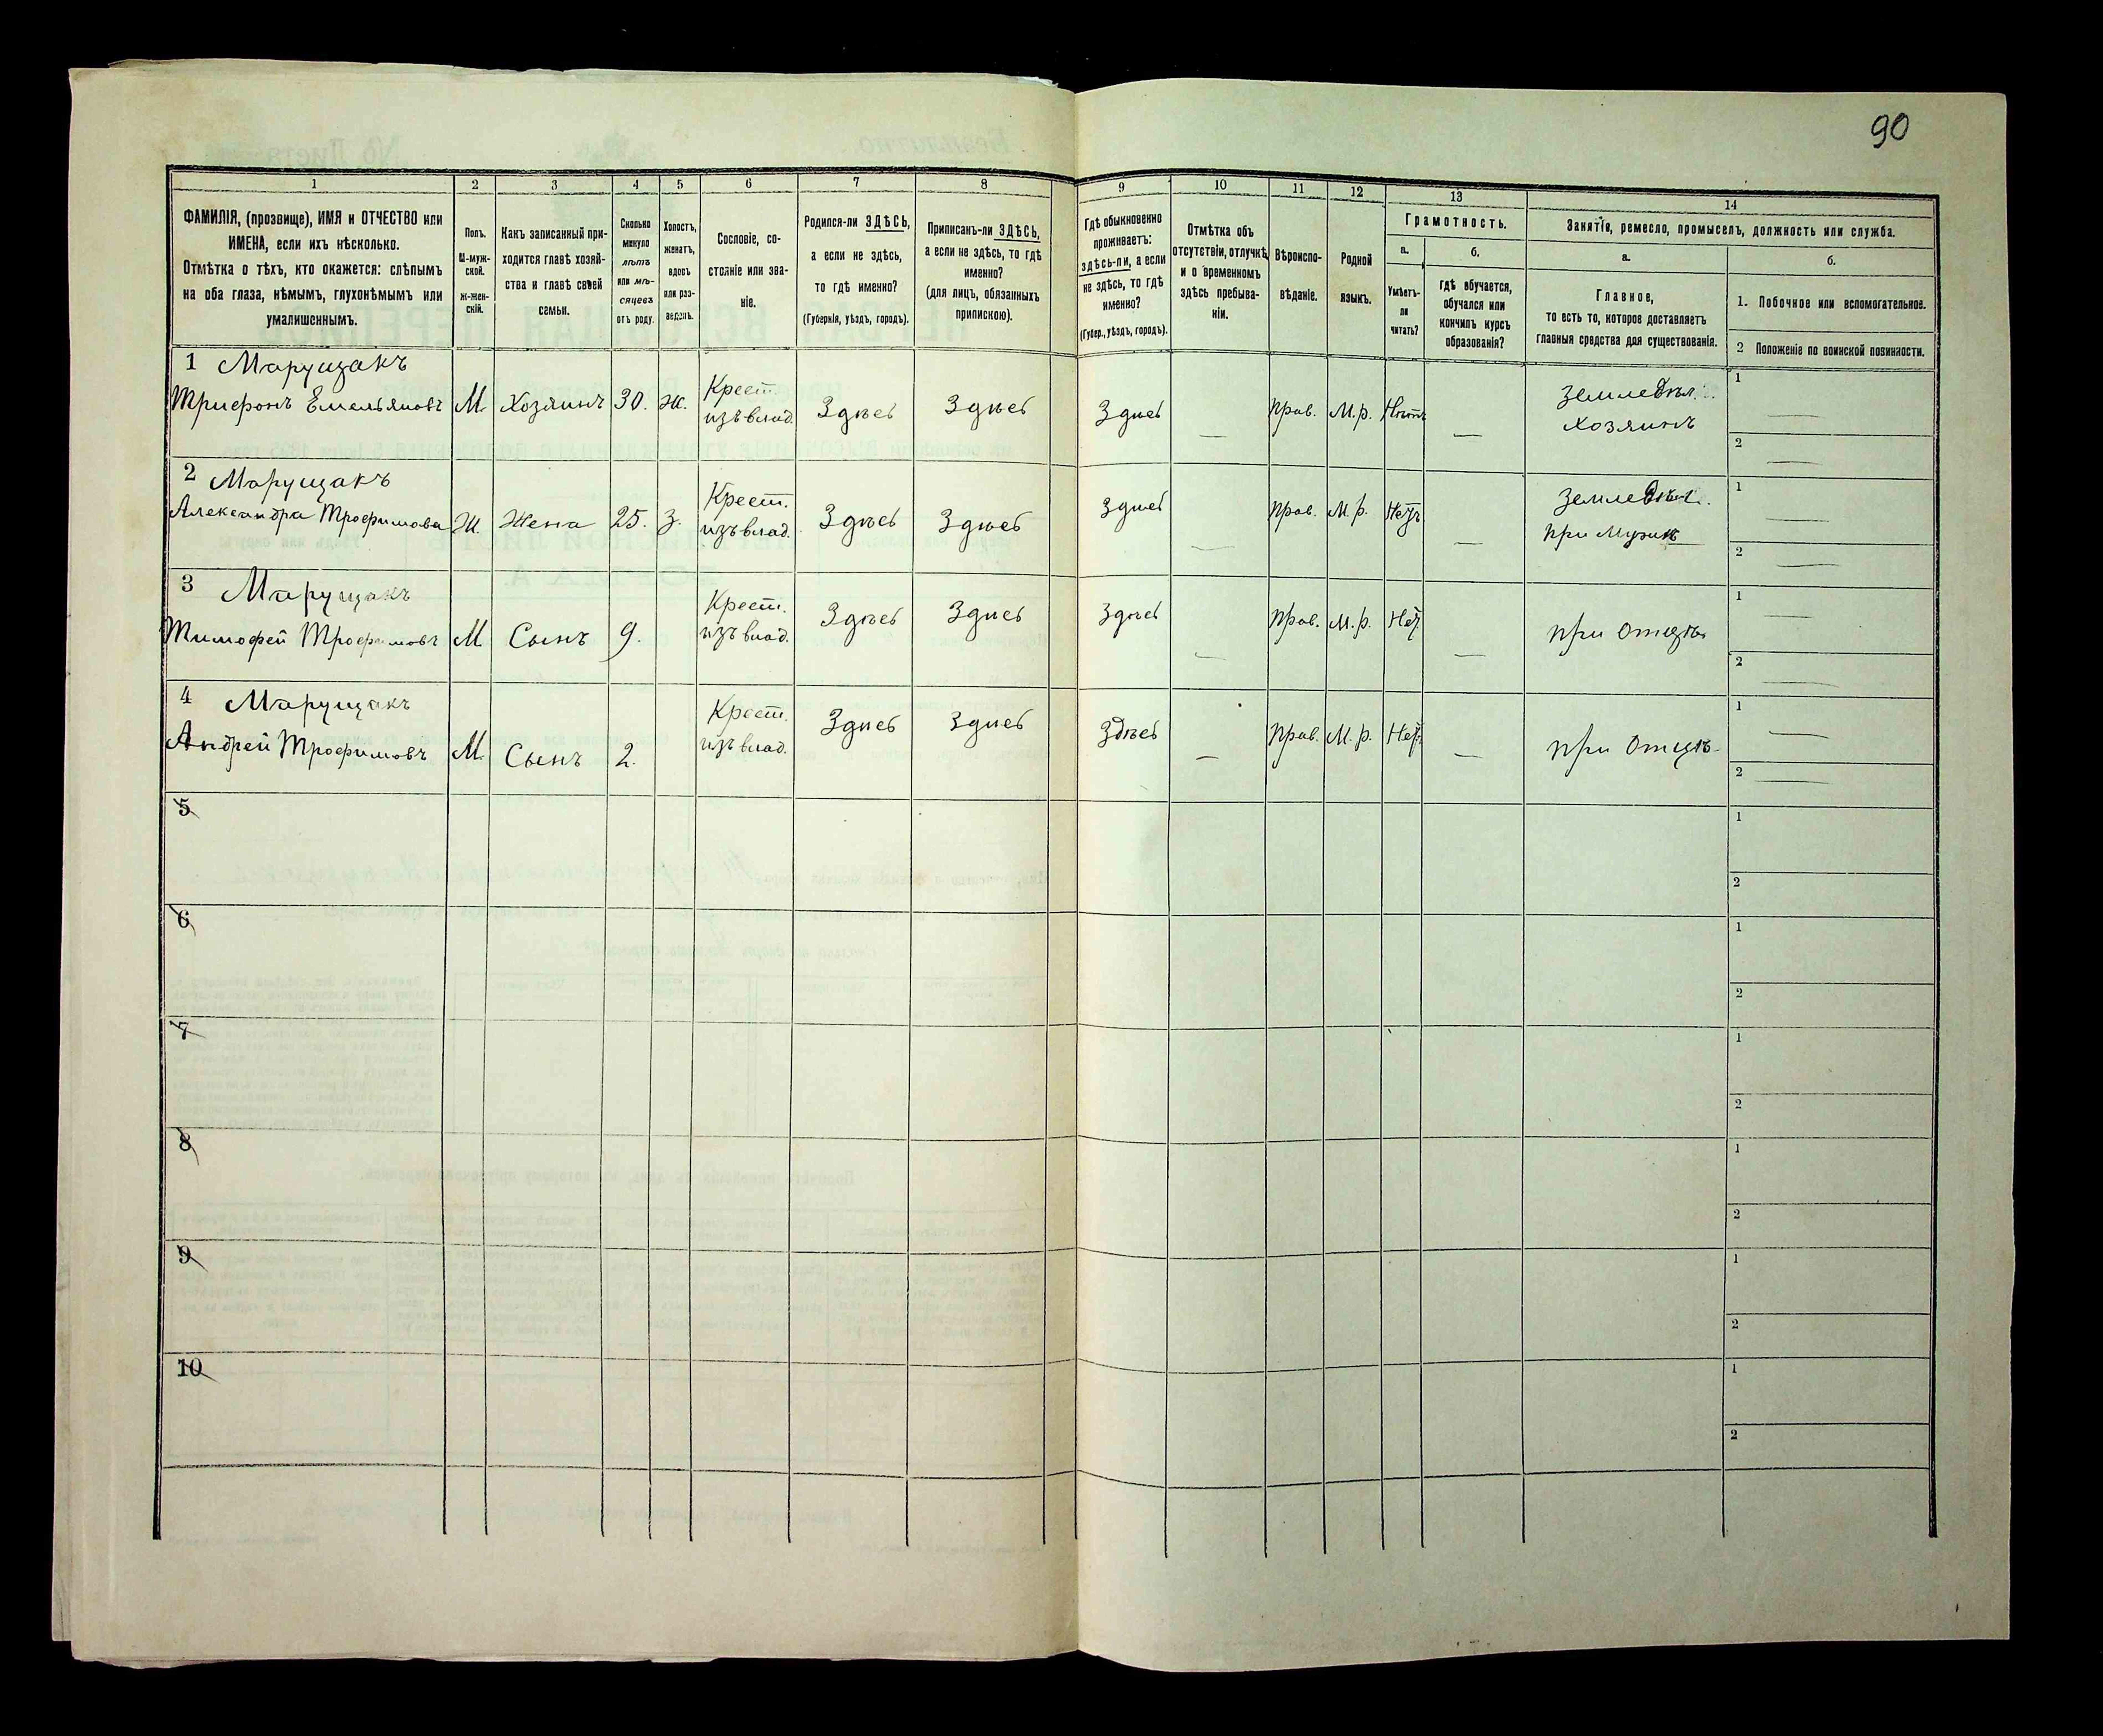 90
1
2
3
4
5
6
7
8
9
10
11
12
13
14
ФАМИЛІЯ, (прозвище), ИМЯ и ОТЧЕСТВО или
ИМЕНА, если ихъ нѣсколько.
Отмѣтка о тѣхъ, кто окажется: слѣпымъ
на оба глаза, нѣмымъ, глухонѣмымъ или
умалишеннымъ.
Полъ.
М-муж-
ской.
ж-жен-
скій.
Какъ записанный при-
ходится главѣ хозяй-
ства и главѣ своей
семьи.
Сколько
минуло
лѣтъ
или мѣ-
сяцевъ
отъ роду.
Холостъ,
женатъ,
вдовъ
или раз-
веденъ.
Сословіе, со-
стояніе или зва-
ніе.
Родился-ли ЗДѢСЬ,
а если не здѣсь,
то гдѣ именно?
(Губернія, уѣздъ, городъ).
Приписанъ-ли ЗДѢСЬ,
а если не здѣсь, то гдѣ
именно?
(для лицъ, обязанныхъ
припискою).
Гдѣ обыкновенно
проживаетъ:
здѣсь-ли, а если
не здѣсь, то гдѣ
именно?
(Губер., уѣздъ, городъ).
Отмѣтка объ
отсутствіи, отлучкѣ
и о временномъ
здѣсь пребыва-
ніи.
Вѣроиспо-
вѣданіе.
Родной
языкъ.
Грамотность.
а.
Умѣетъ-
ли
читать?
б.
гдѣ обучается,
обучался или
кончилъ курсъ
образованія?
Занятія, ремесло, промыселъ, должность или служба.
а.
Главное,
то есть то, которое доставляетъ
главныя средства для существованія.
б.
1. Побочное или вспомогательное.
2 Положеніе по воинской повинности.
1 Марущакъ
Трифонъ Емельяновъ М. Хозяинъ 30. ж. Крест. изъ влад. Здѣсь Здѣсь Здѣсь — Прав. М.р. Нѣтъ — Земледѣл. Хозяинъ 1 — 2 —
2 Марущакъ
Александра Трофимова Ж Жена 25. З. Крест. изъ влад. Здѣсь Здѣсь Здѣсь — Прав. М.р. Нетъ — Земледѣл. при Мужѣ 1 — 2 —
3 Марущакъ
Тимофей Трофимовъ М Сынъ 9. Крест. изъ влад. Здѣсь Здѣсь Здѣсь — Прав. М.р. Нет. — при Отцѣ 1 — 2 —
4 Марущакъ
Андрей Трофимовъ М. Сынъ 2. Крест. изъ влад. Здѣсь Здѣсь Здѣсь — Прав. М.р. Нет. — при Отцѣ 1 — 2 —
5 1 2
6 1 2
7 1 2
8 1 2
9 1 2
10 1 2